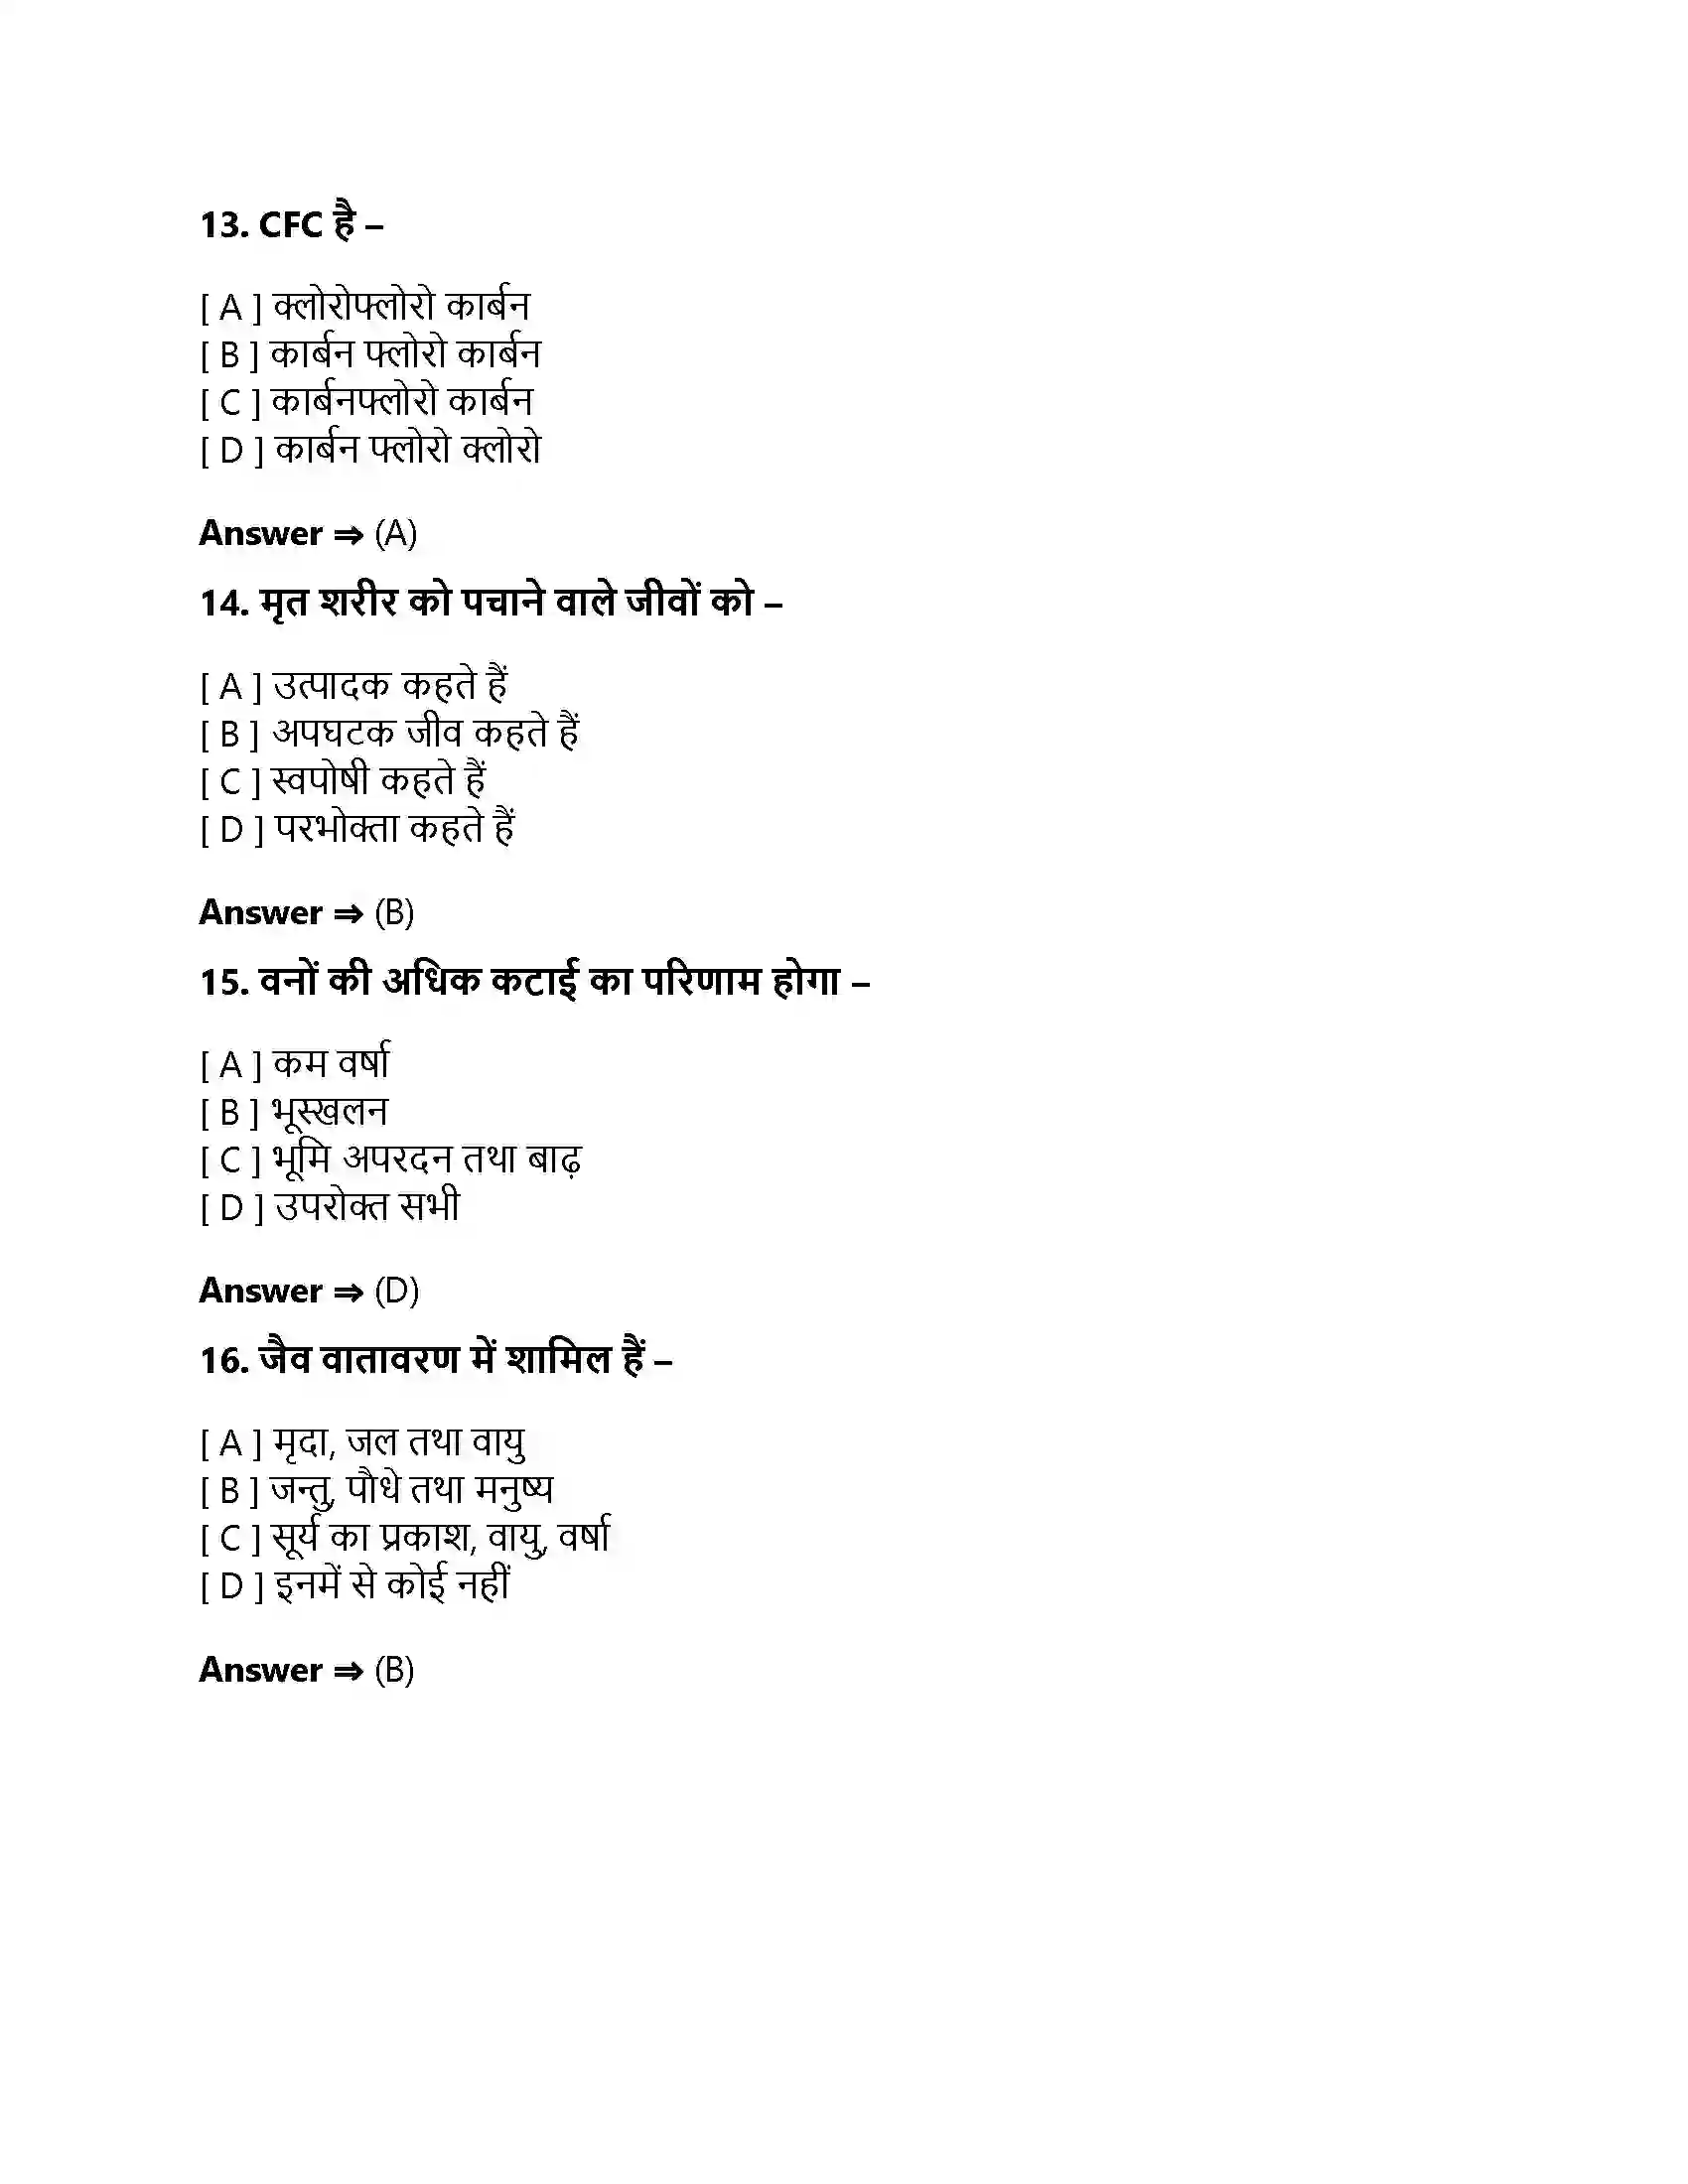 13. CFC है –
[ A ] क्लोरोफ्लोरो कार्बन
[ B ] कार्बन फ्लोरो कार्बन
[ C ] कार्बनफ्लोरो कार्बन
[ D ] कार्बन फ्लोरो क्लोरो
Answer ⇒ (A)
14. मृत शरीर को पचाने वाले जीवों को –
[ A ] उत्पादक कहते हैं
[ B ] अपघटक जीव कहते हैं
[ C ] स्वपोषी कहते हैं
[ D ] परभोक्ता कहते हैं
Answer ⇒ (B)
15. वनों की अधिक कटाई का परिणाम होगा –
[ A ] कम वर्षा
[ B ] भूस्खलन
[ C ] भूमि अपरदन तथा बाढ़
[ D ] उपरोक्त सभी
Answer ⇒ (D)
16. जैव वातावरण में शामिल हैं –
[ A ] मृदा, जल तथा वायु
[ B ] जन्तु, पौधे तथा मनुष्य
[ C ] सूर्य का प्रकाश, वायु, वर्षा
[ D ] इनमें से कोई नहीं
Answer ⇒ (B)